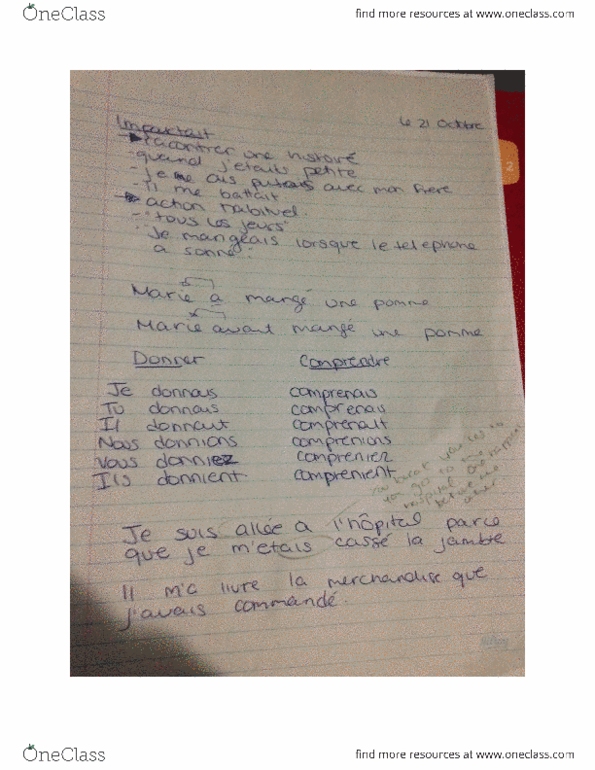 OneClass
find more resources at www.oneclass.com
Imparfait
le 21 Octobre
→ racontrer une histoire
- quand j'étais petite
- je me
avec mon frere
- Il me battait
→ action habituel
- "tous les jours"
- "Je mangeais lorsque le telephone
a sonné".
Marie a mangé une pomme
Marie avait mangé une pomme
Donner
Comprendre
Je donnais comprenais
Tu donnais comprenais
Il donnait comprenait
Nous donnions comprenions
Vous donniez compreniez
Ils donnient comprenient
you go to the
hospital one happened
before the
other
Je suis allée a l'hôpital parce
que je m'etais cassé la jambe
Il m'a livre la merchandise que
j'avais commandé.
OneClass
find more resources at www.oneclass.com